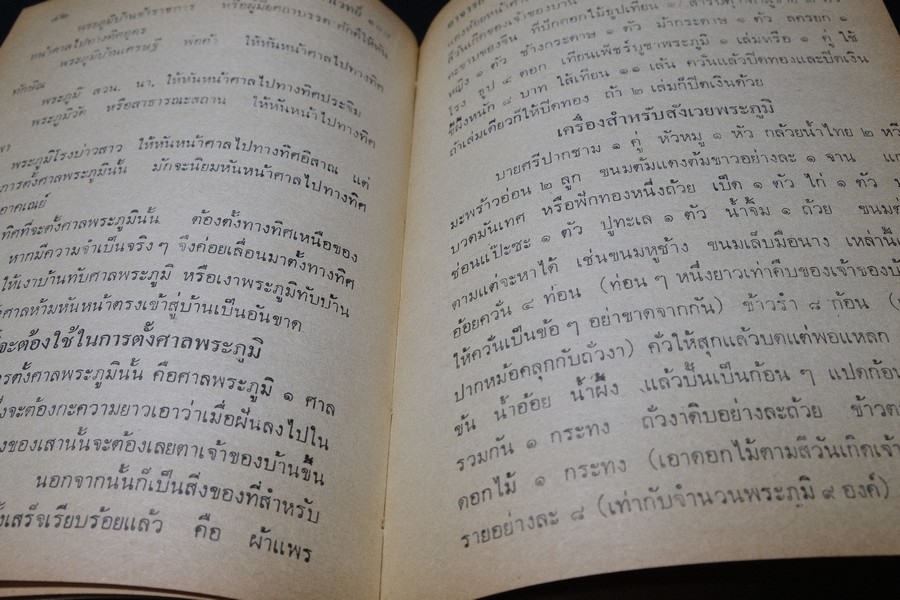 พระภูมิบ้านข้าราชการ หรือผู้มียศถาบรรดาศักดิ์ให้หัน
หน้าศาลไปทางทิศอุดร
พระภูมิบ้านเศรษฐี พ่อค้า ให้หันหน้าศาลไปทางทิศ
ทักษิณ
พระภูมิ สวน. นา. ให้หันหน้าศาลไปทางทิศประจิม
พระภูมิวัด หรือสาธารณะสถาน ให้หันหน้าไปทางทิศ
พระภูมิโรงบ่าวสาว ให้หันหน้าศาลไปทางทิศอิสาณ แต่
การตั้งศาลพระภูมินั้น มักจะนิยมหันหน้าศาลไปทางทิศ
อาคเณย์
ทิศที่จะตั้งศาลพระภูมินั้น ต้องตั้งทางทิศเหนือของ
หากมีความจำเป็นจริงๆ จึงค่อยเลื่อนมาตั้งทางทิศ
ให้เงาบ้านทับศาลพระภูมิ หรือเงาพระภูมิทับบ้าน
ศาลห้ามหันหน้าตรงเข้าสู่บ้านเป็นอันขาด
จะต้องใช้ในการตั้งศาลพระภูมิ
การตั้งศาลพระภูมินั้น คือศาลพระภูมิ ๑ ศาล
จะต้องกะความยาวเอาว่าเมื่อฝังลงไปใน
ของเสานั้นจะต้องเลยตาเจ้าของบ้านขึ้น
นอกจากนั้นก็เป็นสิ่งของที่สำหรับ
เสร็จเรียบร้อยแล้ว คือ ผ้าแพร
สีวันเกิดของเจ้าของบ้าน
หญิง ๑ ตัว ช้างกระดาษ ๑ ตัว ม้ากระดาษ ๑ ตัว ละครยก ๑
โรง ธูป ๔ ดอก เทียนเพ็ชร์บูชาพระภูมิ ๑ เล่มหรือ ๑ คู่ ใช้
ขี้ผึ้งหนัก ๘ บาท ไส้เทียน ๑๑ เส้น ควั่นแล้วปิดทองและปิดเงิน
ถ้าเล่มเดียวก็ให้ปิดทอง ถ้า ๒ เล่มก็ปิดเงินด้วย
เครื่องสำหรับสังเวยพระภูมิ
บายศรีปากชาม ๑ คู่ หัวหมู ๑ หัว กล้วยน้ำไทย ๒ หวี
มะพร้าวอ่อน ๒ ลูก ขนมต้มแดงต้มขาวอย่างละ ๑ จาน
บวดมันเทศ หรือฟักทองหนึ่งถ้วย เป็ด ๑ ตัว ไก่ ๑ ตัว
ช่อนแป๊ะซะ ๑ ตัว ปูทะเล ๑ ตัว น้ำจิ้ม ๑ ถ้วย ขนม
ตามแต่จะหาได้ เช่นขนมหูช้าง ขนมเล็บมือนาง เหล่านี้
อ้อยควั่น ๔ ท่อน (ท่อนๆ หนึ่งยาวเท่าคืบของเจ้าของบ้าน
ให้ควั่นเป็นข้อๆ อย่าขาดจากกัน) ข้าวรำ ๘ ก้อน
ปากหม้อคลุกกับถั่วงา) คั่วให้สุกแล้วบดแต่พอแหลก
ข้น น้ำอ้อย น้ำผึ้ง แล้วปั้นเป็นก้อนๆ แปดก้อน
รวมกัน ๑ กระทง ถั่วงาดิบอย่างละถ้วย ข้าวตอก
ดอกไม้ ๑ กระทง (เอาดอกไม้ตามสีวันเกิดเจ้า
รายอย่างละ ๘ (เท่ากับจำนวนพระภูมิ ๙ องค์)